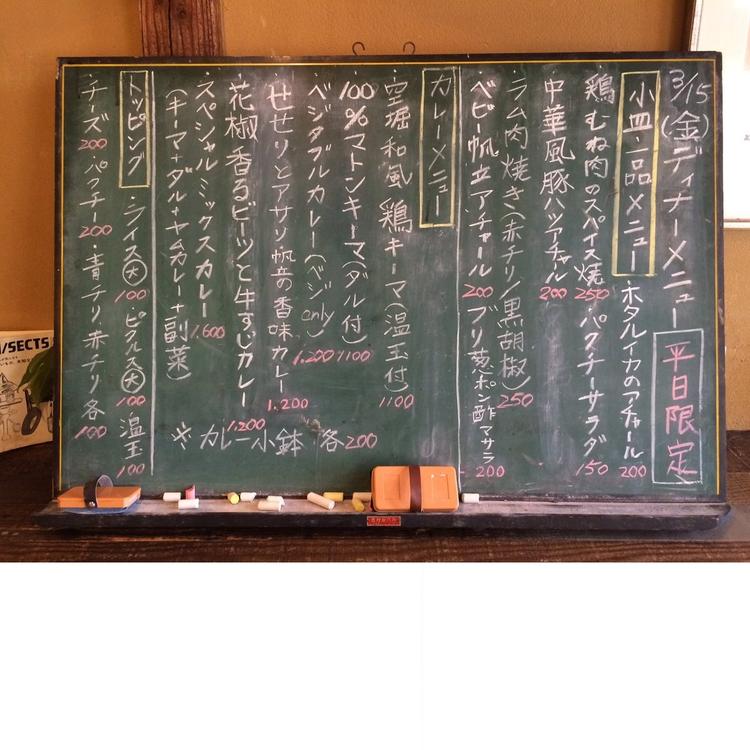 3/15(金)ディナーメニュー 平日限定
小皿一品メニュー ・ホタルイカのアチャール 200
・鶏むね肉のスパイス焼 250 ・パクチーサラダ 150
・中華風豚ハツアチャール 200
・ラム肉焼き(赤チリ/黒胡椒) 250
・ベビー帆立アチャール 200 ・ブリ葱ポン酢マサラ 200
カレーメニュー
・空堀和風鶏キーマ(温玉付) 1100
・100%マトンキーマ(ダル付) 1100
・ベジタブルカレー(ベジonly) 1.200
・せせりとアサリ帆立の香味カレー 1.200
・花椒香るビーツと牛すじカレー 1.200
・スペシャルミックスカレー 1.600
(キーマ+ダル+ヤムカレー+副菜)
※カレー小鉢 各200
トッピング ・ライス(大) 100 ・ピクルス(大) 100 ・温玉 100
・チーズ 200 ・パクチー 200 ・青チリ 赤チリ 各100
/SECTS